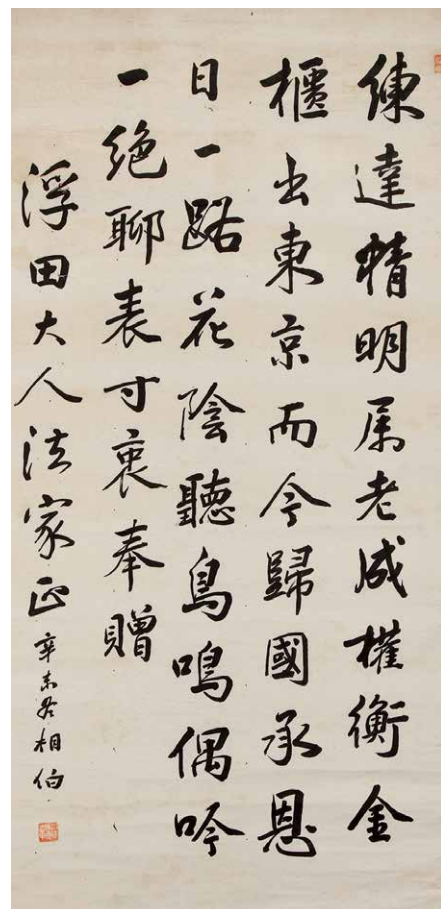 練達精明属老成權衡金
櫃出東京而今歸國承恩
日一路花陰聽鳥鳴偶吟
一絕聊表寸衷奉贈
浮田大人法家正 辛未春相伯